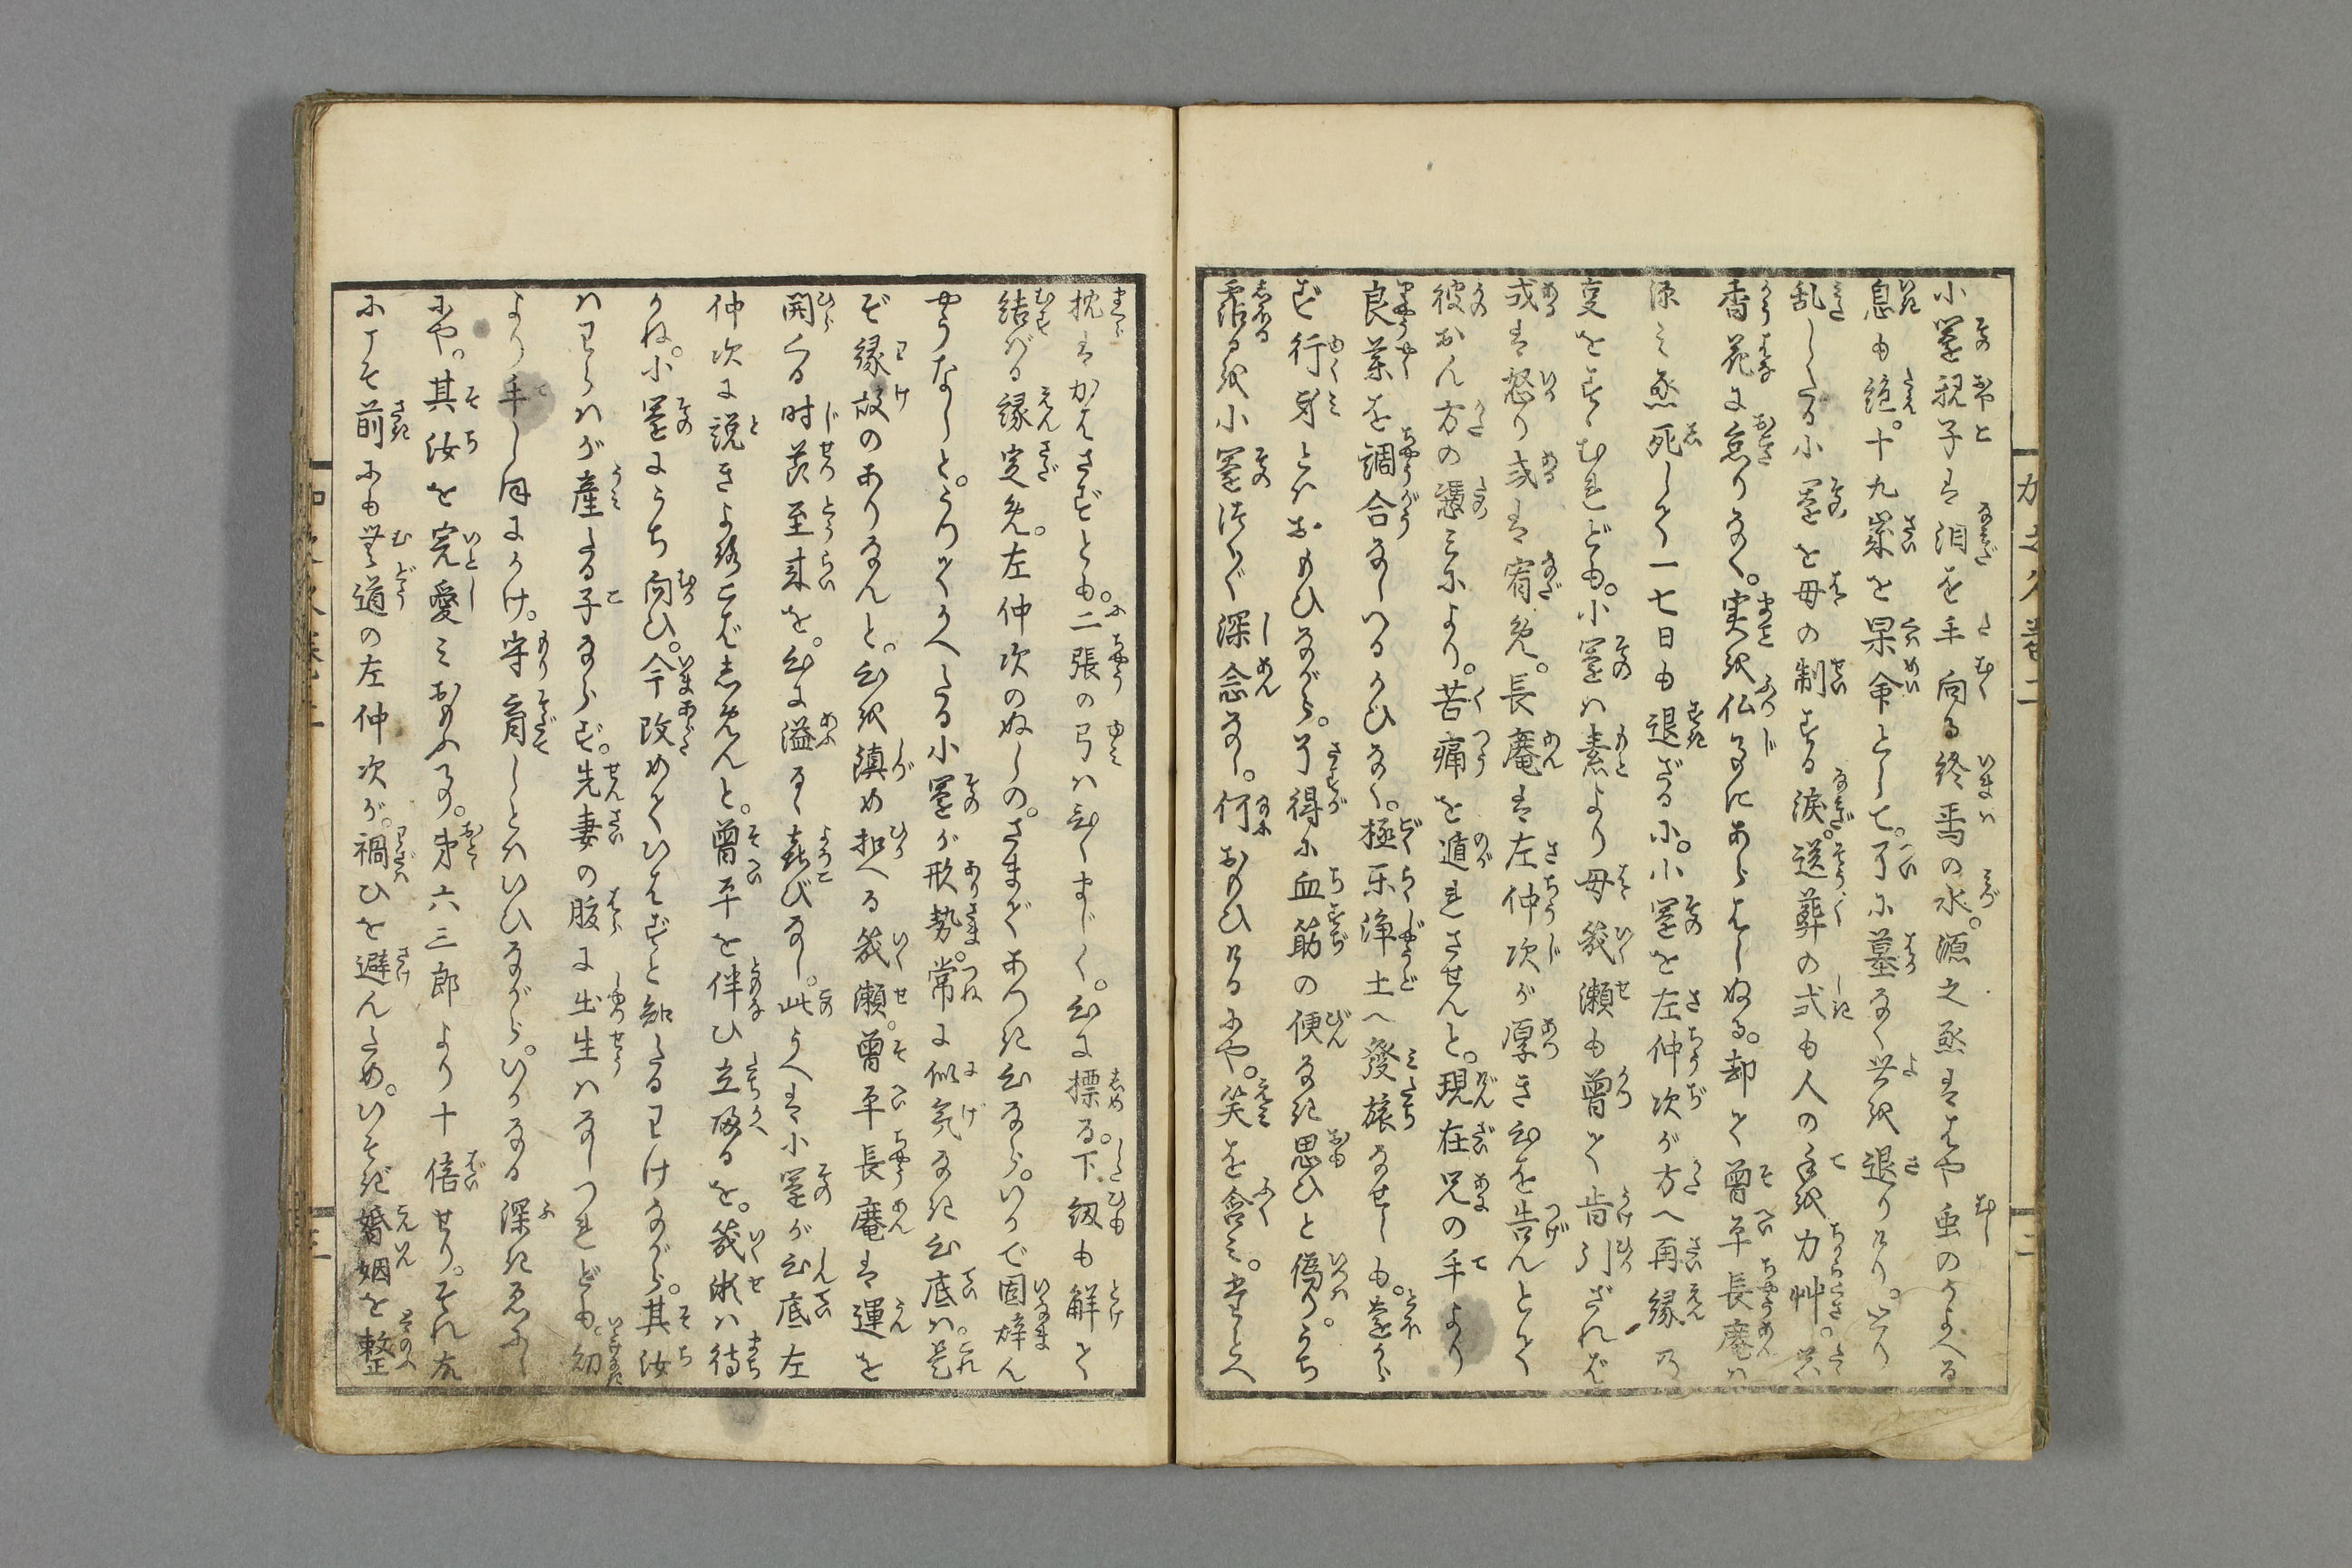 小園親子は泪を手向る終焉の水。源之丞ははや虫のかよへる
息も絶。十九歳を果命として。了に墓なく世を退りけり。とり
乱したる小園を母の制する涙。送葬の式も人の手を力艸。
香花に怠りなく。実を仏事にあらはしぬる。却て曾平長庵は
源之丞死して一七日も退ざるに。小園を左仲次が方へ再縁の
変をすゝむれども。小園は素より母幾瀬も曾て肯引ざれば
或は怒り或は宥免。長庵は左仲次が厚き心を告んとて
彼おん方の憑みにより。苦痛を遁れさせんと。現在兄の手より
良薬を調合なしいるかひなく。極楽浄土へ發旅なせしも。遂から
ず行身とはおもひながら。了得に血筋の便なき思ひと偽りうち
霑るを小園はつくづく深念なし。何おもひけるにや。笑を含み。
枕はかはさずとも。二張の弓は引くまじく。心に標る。下紐も解て
結ばる縁定免。左仲次のぬしの。さまざまあつき心ながら。いかで固辞ん
やうなしと。うつてかへたる小園が形勢。常に似気なき心底は是
ぞ縁故のありなんと。心を鎮め扣へる幾瀬。曾平長庵は運を
開くる時節至来を。心に溢るゝ喜びなし。此うへは小園が心底左
仲次に説きよろこばしめんと。曾平を伴ひ立帰るを。幾瀬は待
かね。小園にうち向ひ。今改めていはずと知たるわけながら。其汝
はわらはが産たる子ならず。先妻の腹に出生はなしつれども。幼
より手しほにかけ。守育しとはいひながら。いかなる深き忍にし
にや。其汝を完愛みおもふ事。弟六三郎より十倍せり。それ故
にこそ前にも無道の左仲次が。禍ひを避んため。いそぎ婚姻を整